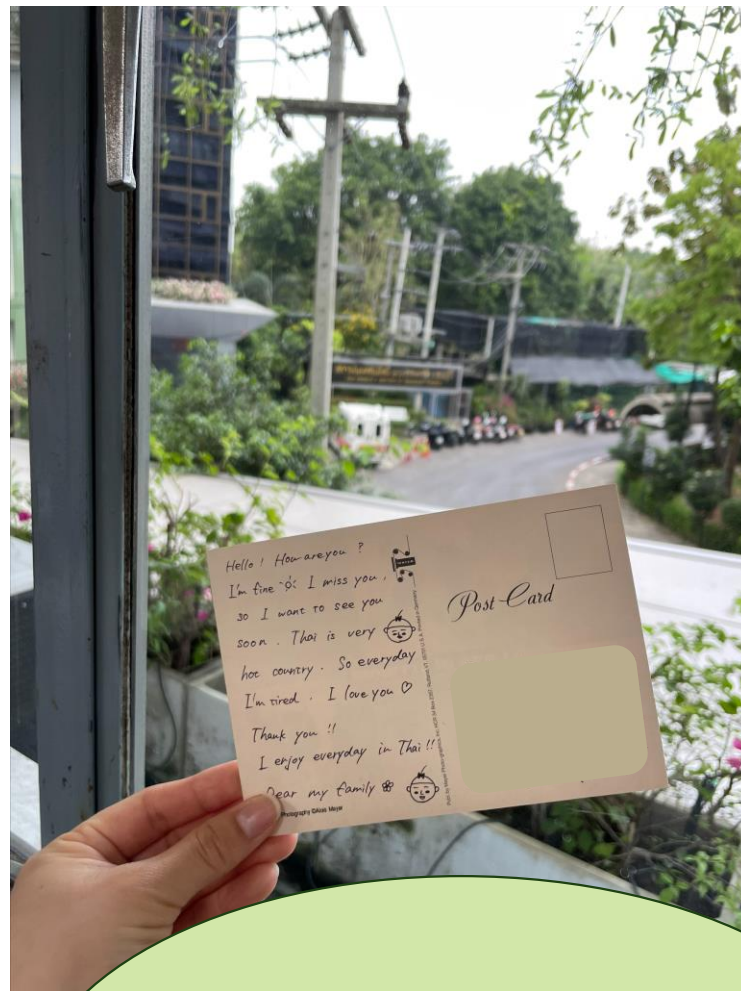 Hello ! How are you ?
I'm fine I miss you ,
so I want to see you
soon . Thai is very
hot country . So everyday
I'm tired . I love you ♡
Thank you !!
I enjoy everyday in Thai !!
Dear my family
Photography ©Alois Mayer
Post-Card